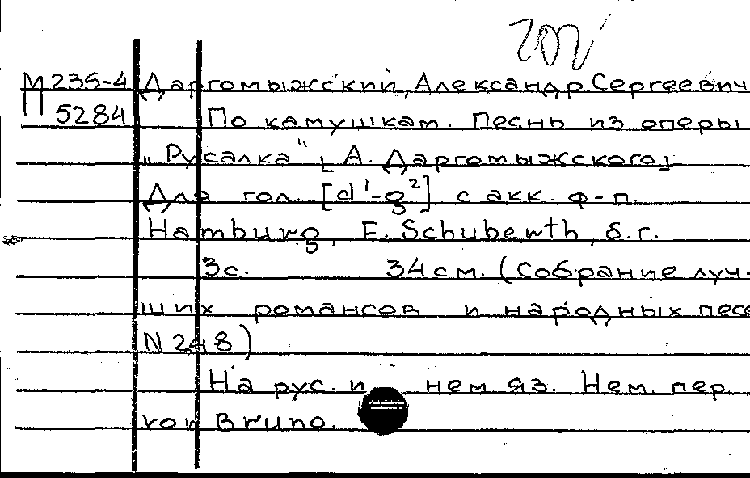 202
М 235-4 Даргомыжский, Александр Сергеевич
П 5284 По камушкам. Песнь из оперы
„Русалка" [А. Даргомыжского]
Для гол. [d¹-g²] с акк. ф-п.
Hamburg, F. Schuberth, б.г.
3с. 34см. (Собрание луч-
ших романсов и народных песе
N 248)
На рус. и нем яз. Нем. пер.
von Bruno.